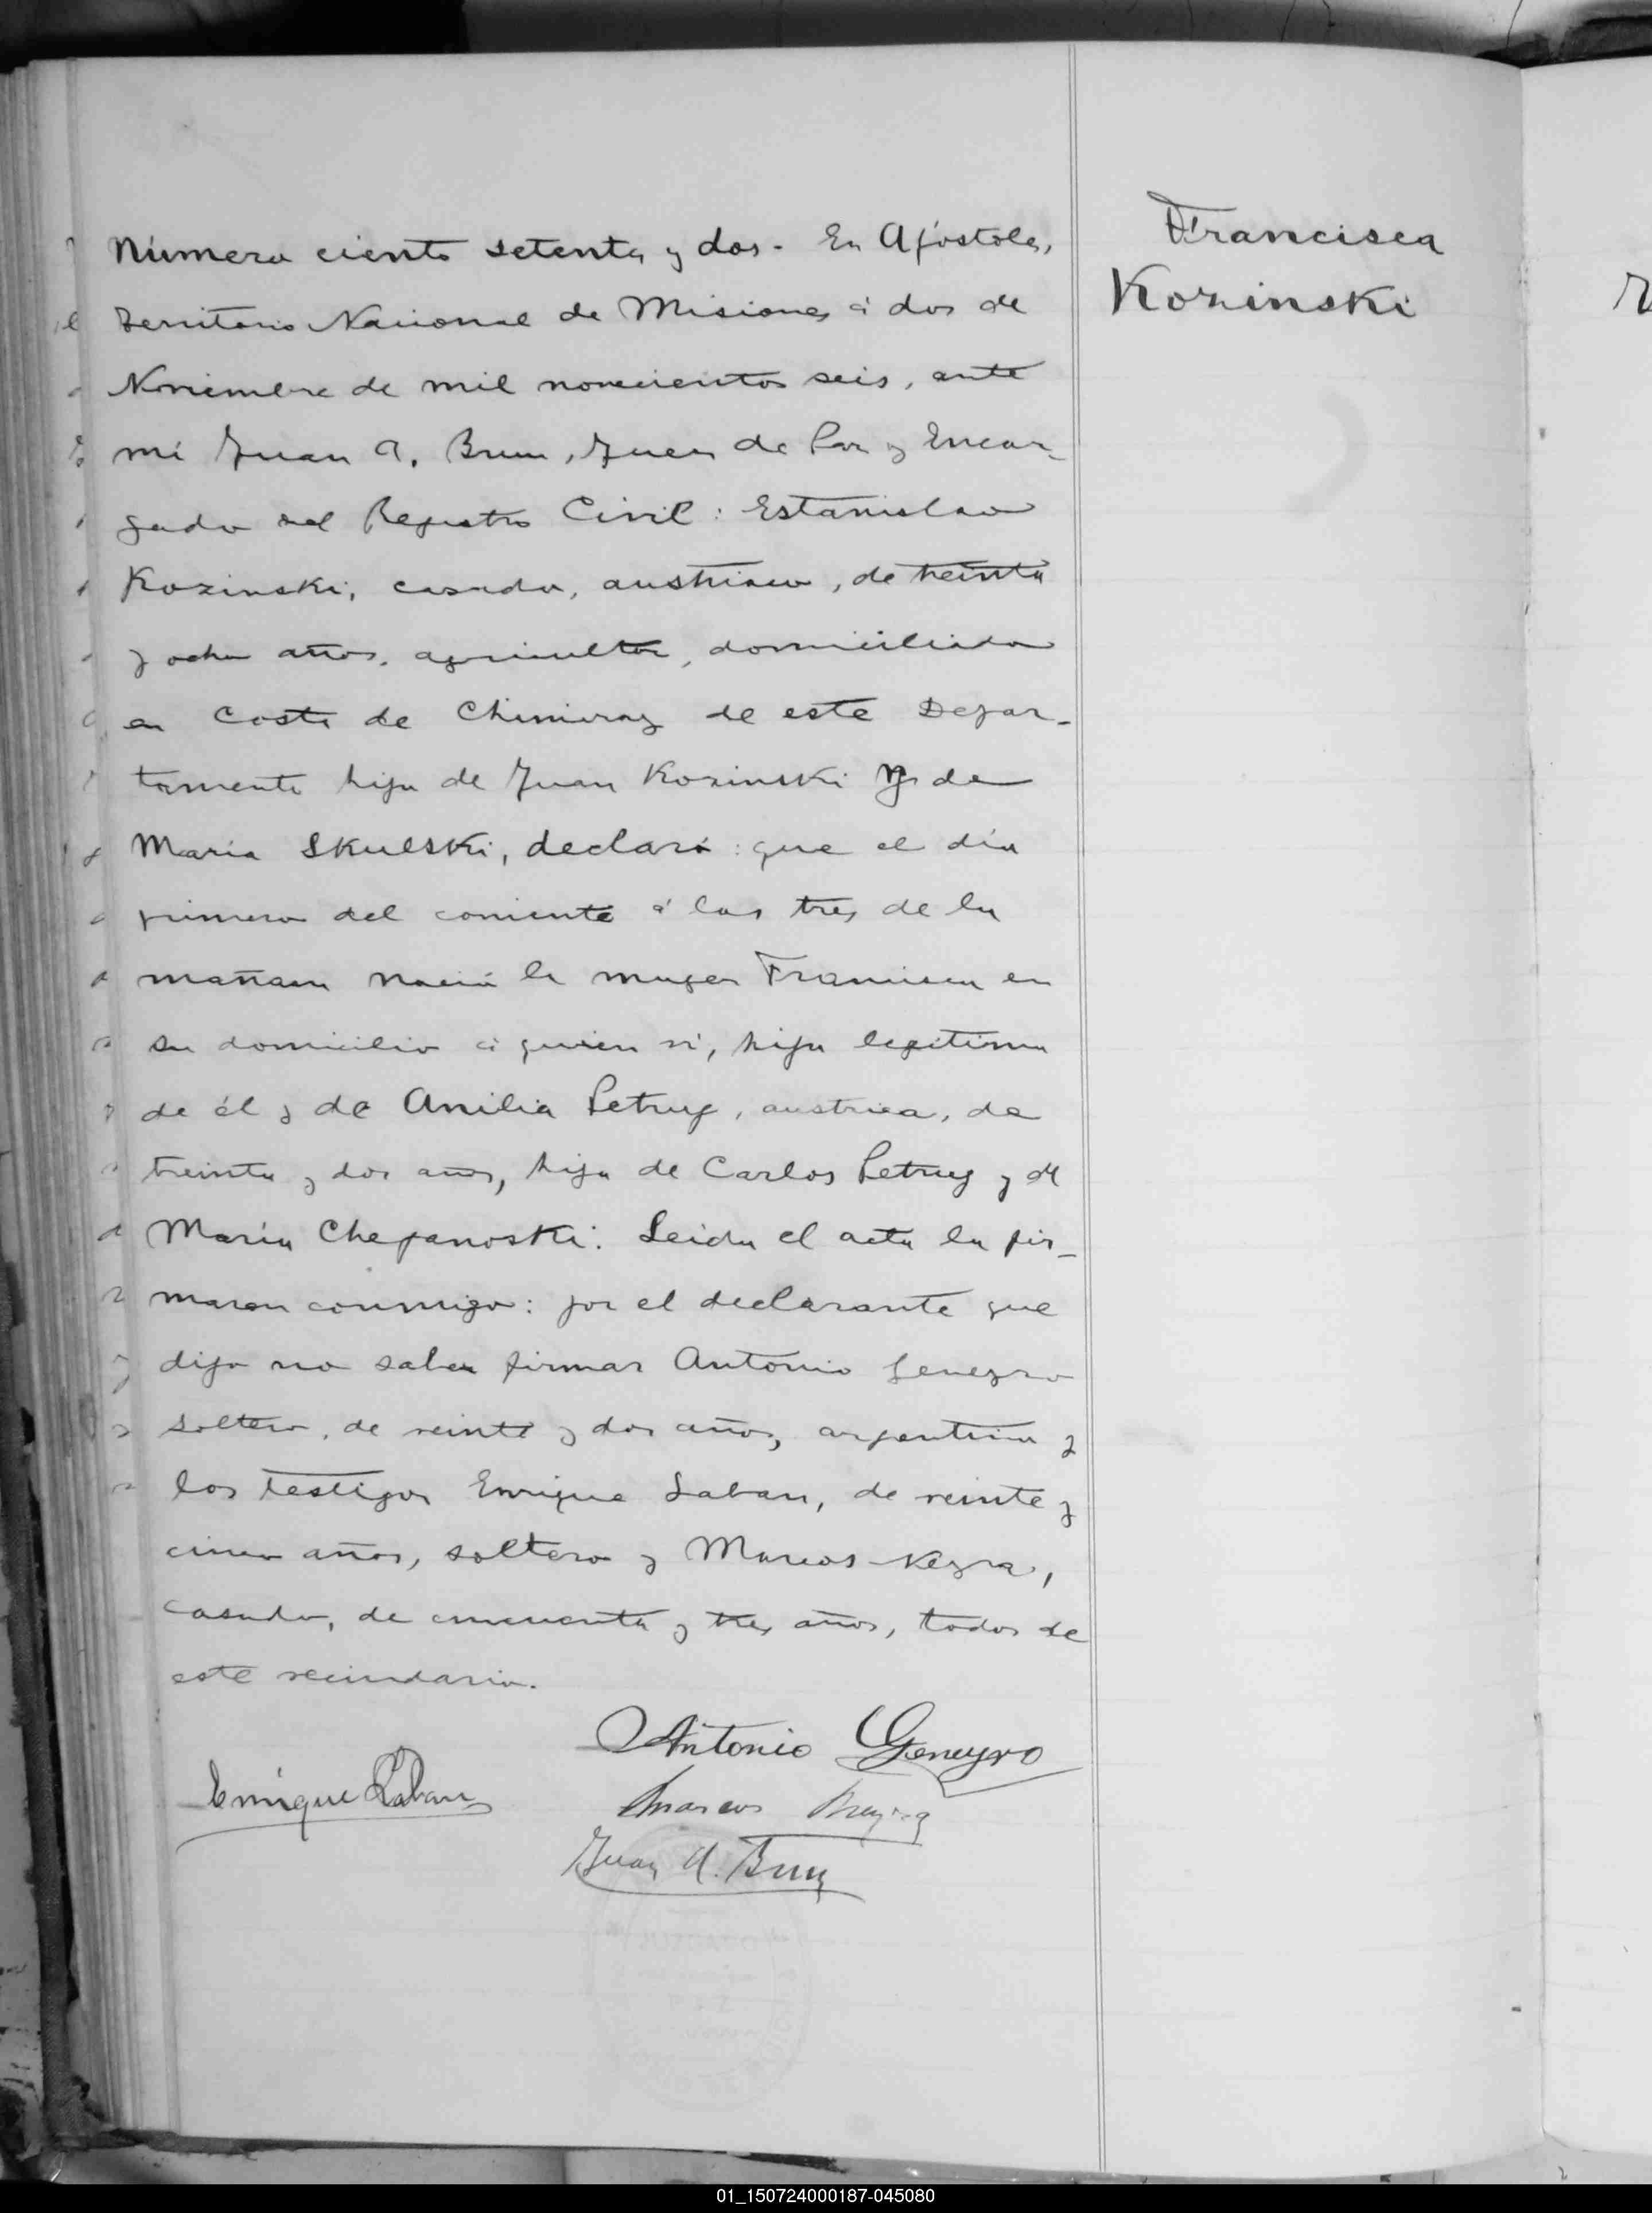 Francisca
Kozinski
Número ciento setenta y dos - En Apóstoles,
Territorio Nacional de Misiones á dos de
Noviembre de mil novecientos seis, ante
mí Juan A. Brun, Juez de Paz y Encar-
gado del Registro Civil: Estanislao
Kozinski, casado, austriaco, de treinta
y ocho años, agricultor, domiciliado
en Costa de Chimiray de este Depar-
tamento hijo de Juan Kozinski y de
María Skulski, declaró: que el día
primero del corriente á las tres de la
mañana nació la mujer Francisca en
su domicilio á quien ví, hija legítima
de él y de Anilia Petruy, austriaca, de
treinta y dos años, hija de Carlos Petruy y de
María Chepanoski. Leida el acta la fir-
maron conmigo: por el declarante que
dijo no saber firmar Antonio Geneyro
soltero, de veinte y dos años, argentino y
los testigos Enrique Laban, de veinte y
cinco años, soltero y Marcos Neyra,
casado, de cincuenta y tres años, todos de
este vecindario.
Antonio Geneyro
Enrique Laban
Marcos Neyra
Juan A. Brun
01_150724000187-045080